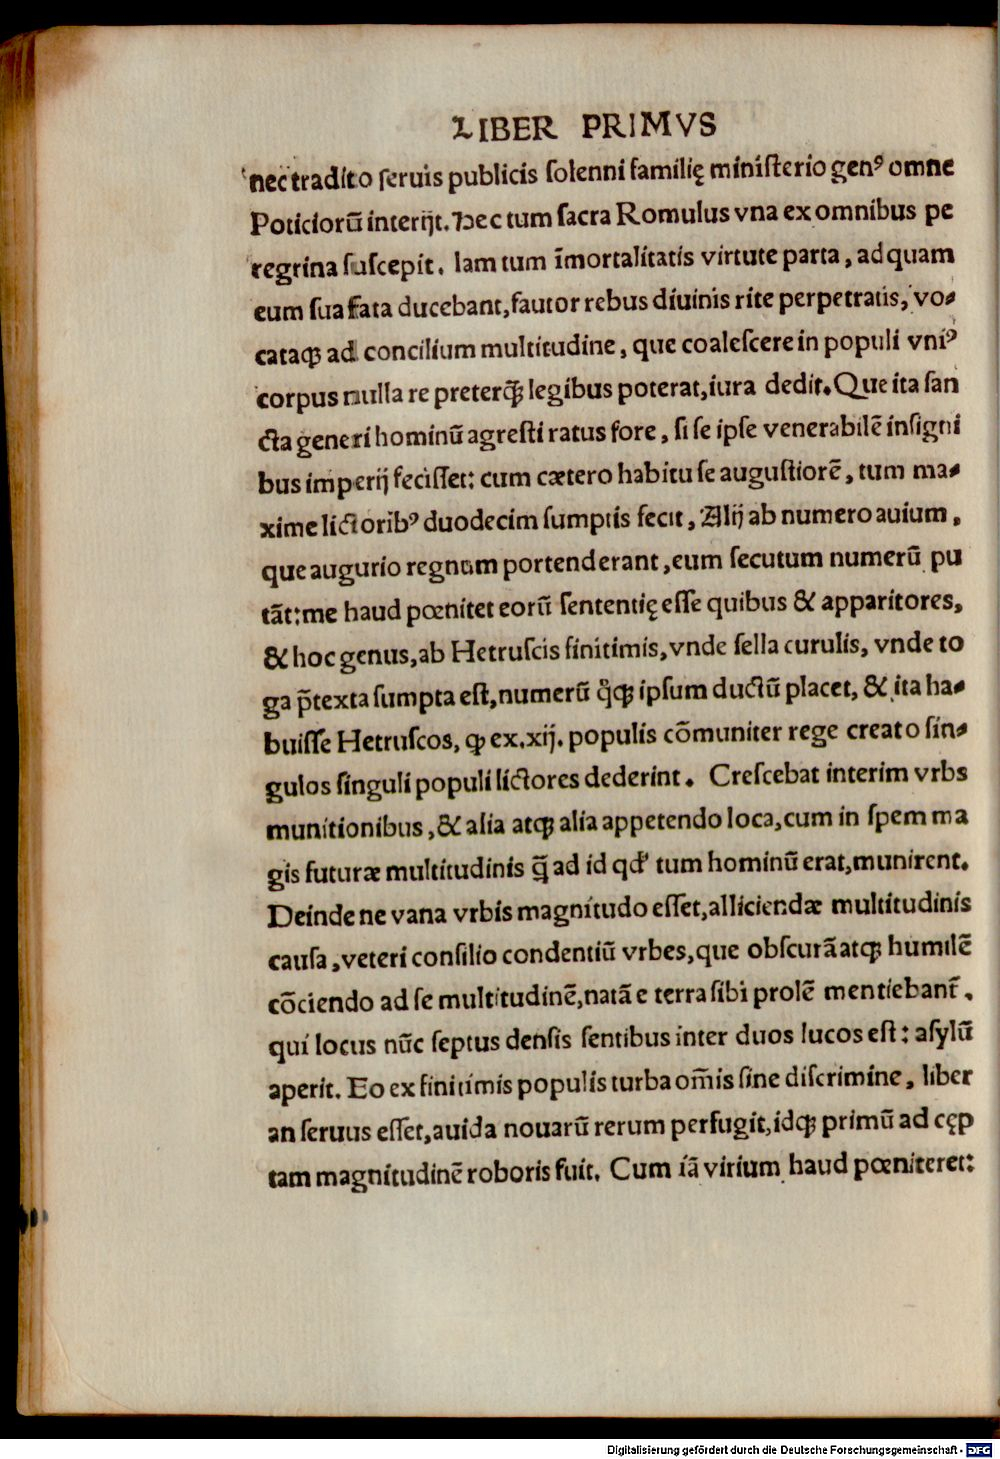 LIBER PRIMVS
nec tradito ſeruis publicis ſolenni familię miniſterio genꝰ omne
Poticiorū interijt. Hec tum ſacra Romulus vna ex omnibus pe
regrina ſuſcepit. Iam tum īmortalitatis virtute parta, ad quam
eum ſua fata ducebant, fautor rebus diuinis rite perpetratis, vo⸗
cataqꝫ ad concilium multitudine, que coaleſcere in populi vniꝰ
corpus nulla re preterq̄ꝫ legibus poterat, iura dedit. Que ita ſan
cta generi hominū agreſti ratus fore, ſi ſe ipſe venerabilē inſigni
bus imperij feciſſet: cum cætero habitu ſe auguſtiorē, tum ma⸗
xime lictoribꝰ duodecim ſumptis fecit, Alij ab numero auium,
que augurio regnum portenderant, eum ſecutum numerū pu
tāt: me haud pœnitet eorū ſententię eſſe quibus & apparitores,
& hoc genus, ab Hetruſcis finitimis, vnde ſella curulis, vnde to
ga p̄texta ſumpta eſt, numerū q̊qꝫ ipſum ductū placet, & ita ha⸗
buiſſe Hetruſcos, ꝙ ex.xij. populis cōmuniter rege creato ſin⸗
gulos ſinguli populi lictores dederint. Creſcebat interim vrbs
munitionibus, & alia atqꝫ alia appetendo loca, cum in ſpem ma
gis futuræ multitudinis q̄ ad id qd' tum hominū erat, munirent.
Deinde ne vana vrbis magnitudo eſſet, alliciendæ multitudinis
cauſa, veteri conſilio condentiū vrbes, que obſcurā atqꝫ humilē
cōciendo ad ſe multitudinē, natā e terra ſibi prolē mentiebant̄.
qui locus nūc ſeptus denſis ſentibus inter duos lucos eſt: aſylū
aperit. Eo ex finitimis populis turba om̄is ſine diſcrimine, liber
an ſeruus eſſet, auida nouarū rerum perfugit, idqꝫ primū ad cęp
tam magnitudinē roboris fuit. Cum iā virium haud pœniteret:
Digitalisierung gefördert durch die Deutsche Forschungsgemeinschaft - DFG